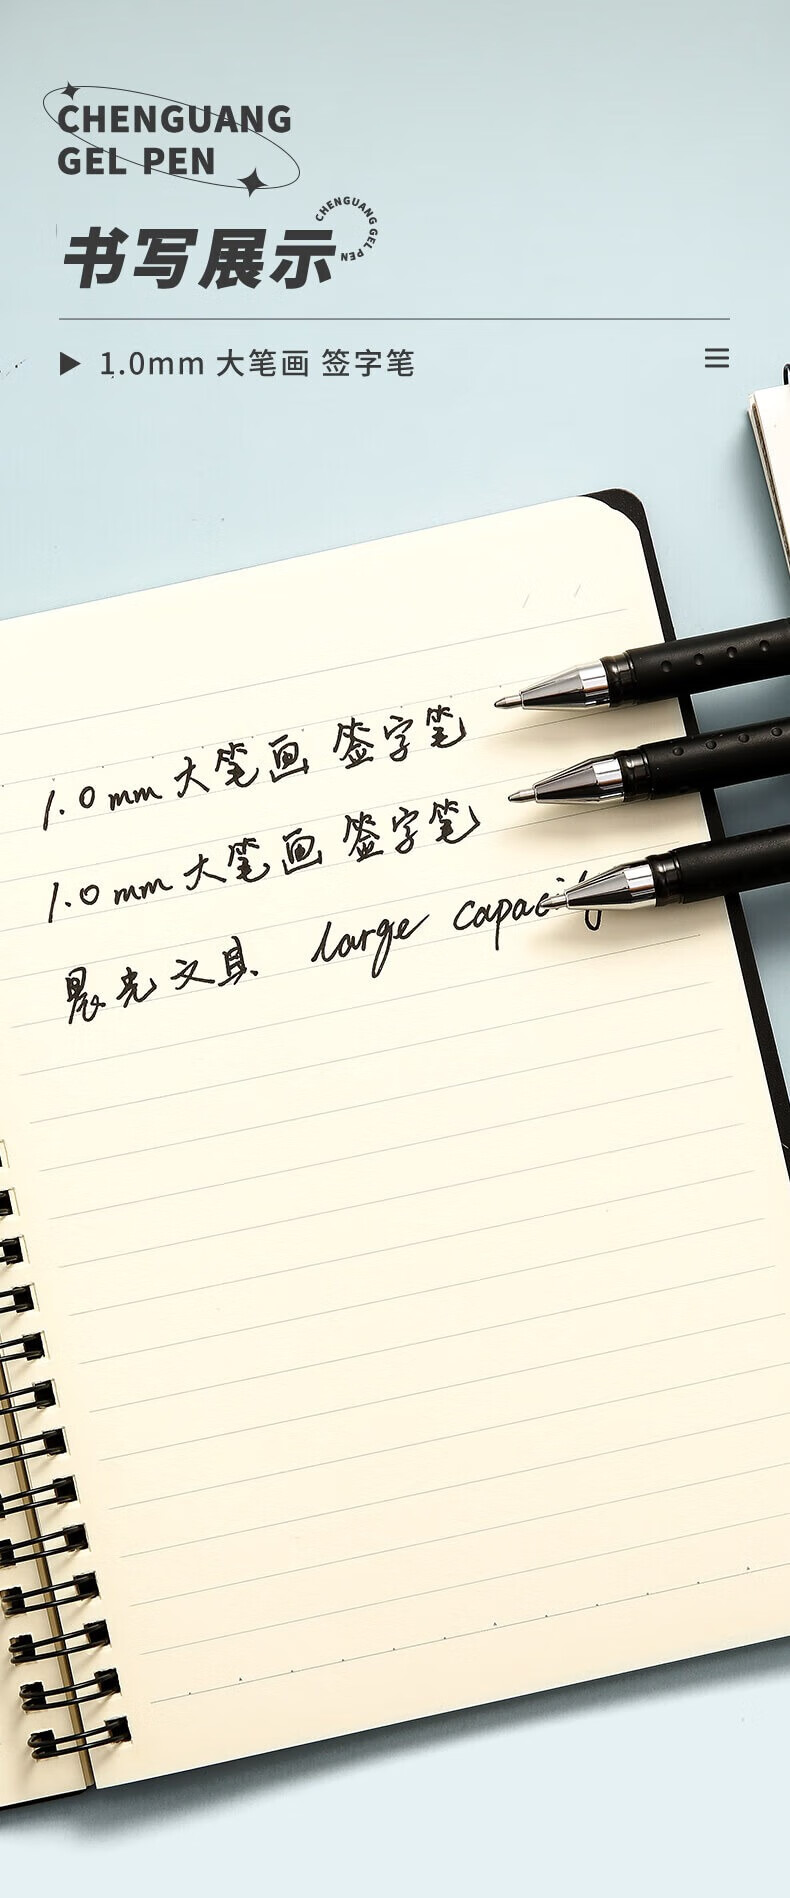 CHENGUANG
GEL PEN
书写展示
CHENGUANG GEL PEN
1.0mm 大笔画 签字笔
1.0mm 大笔画 签字笔
1.0mm 大笔画 签字笔
晨光文具 large capacity